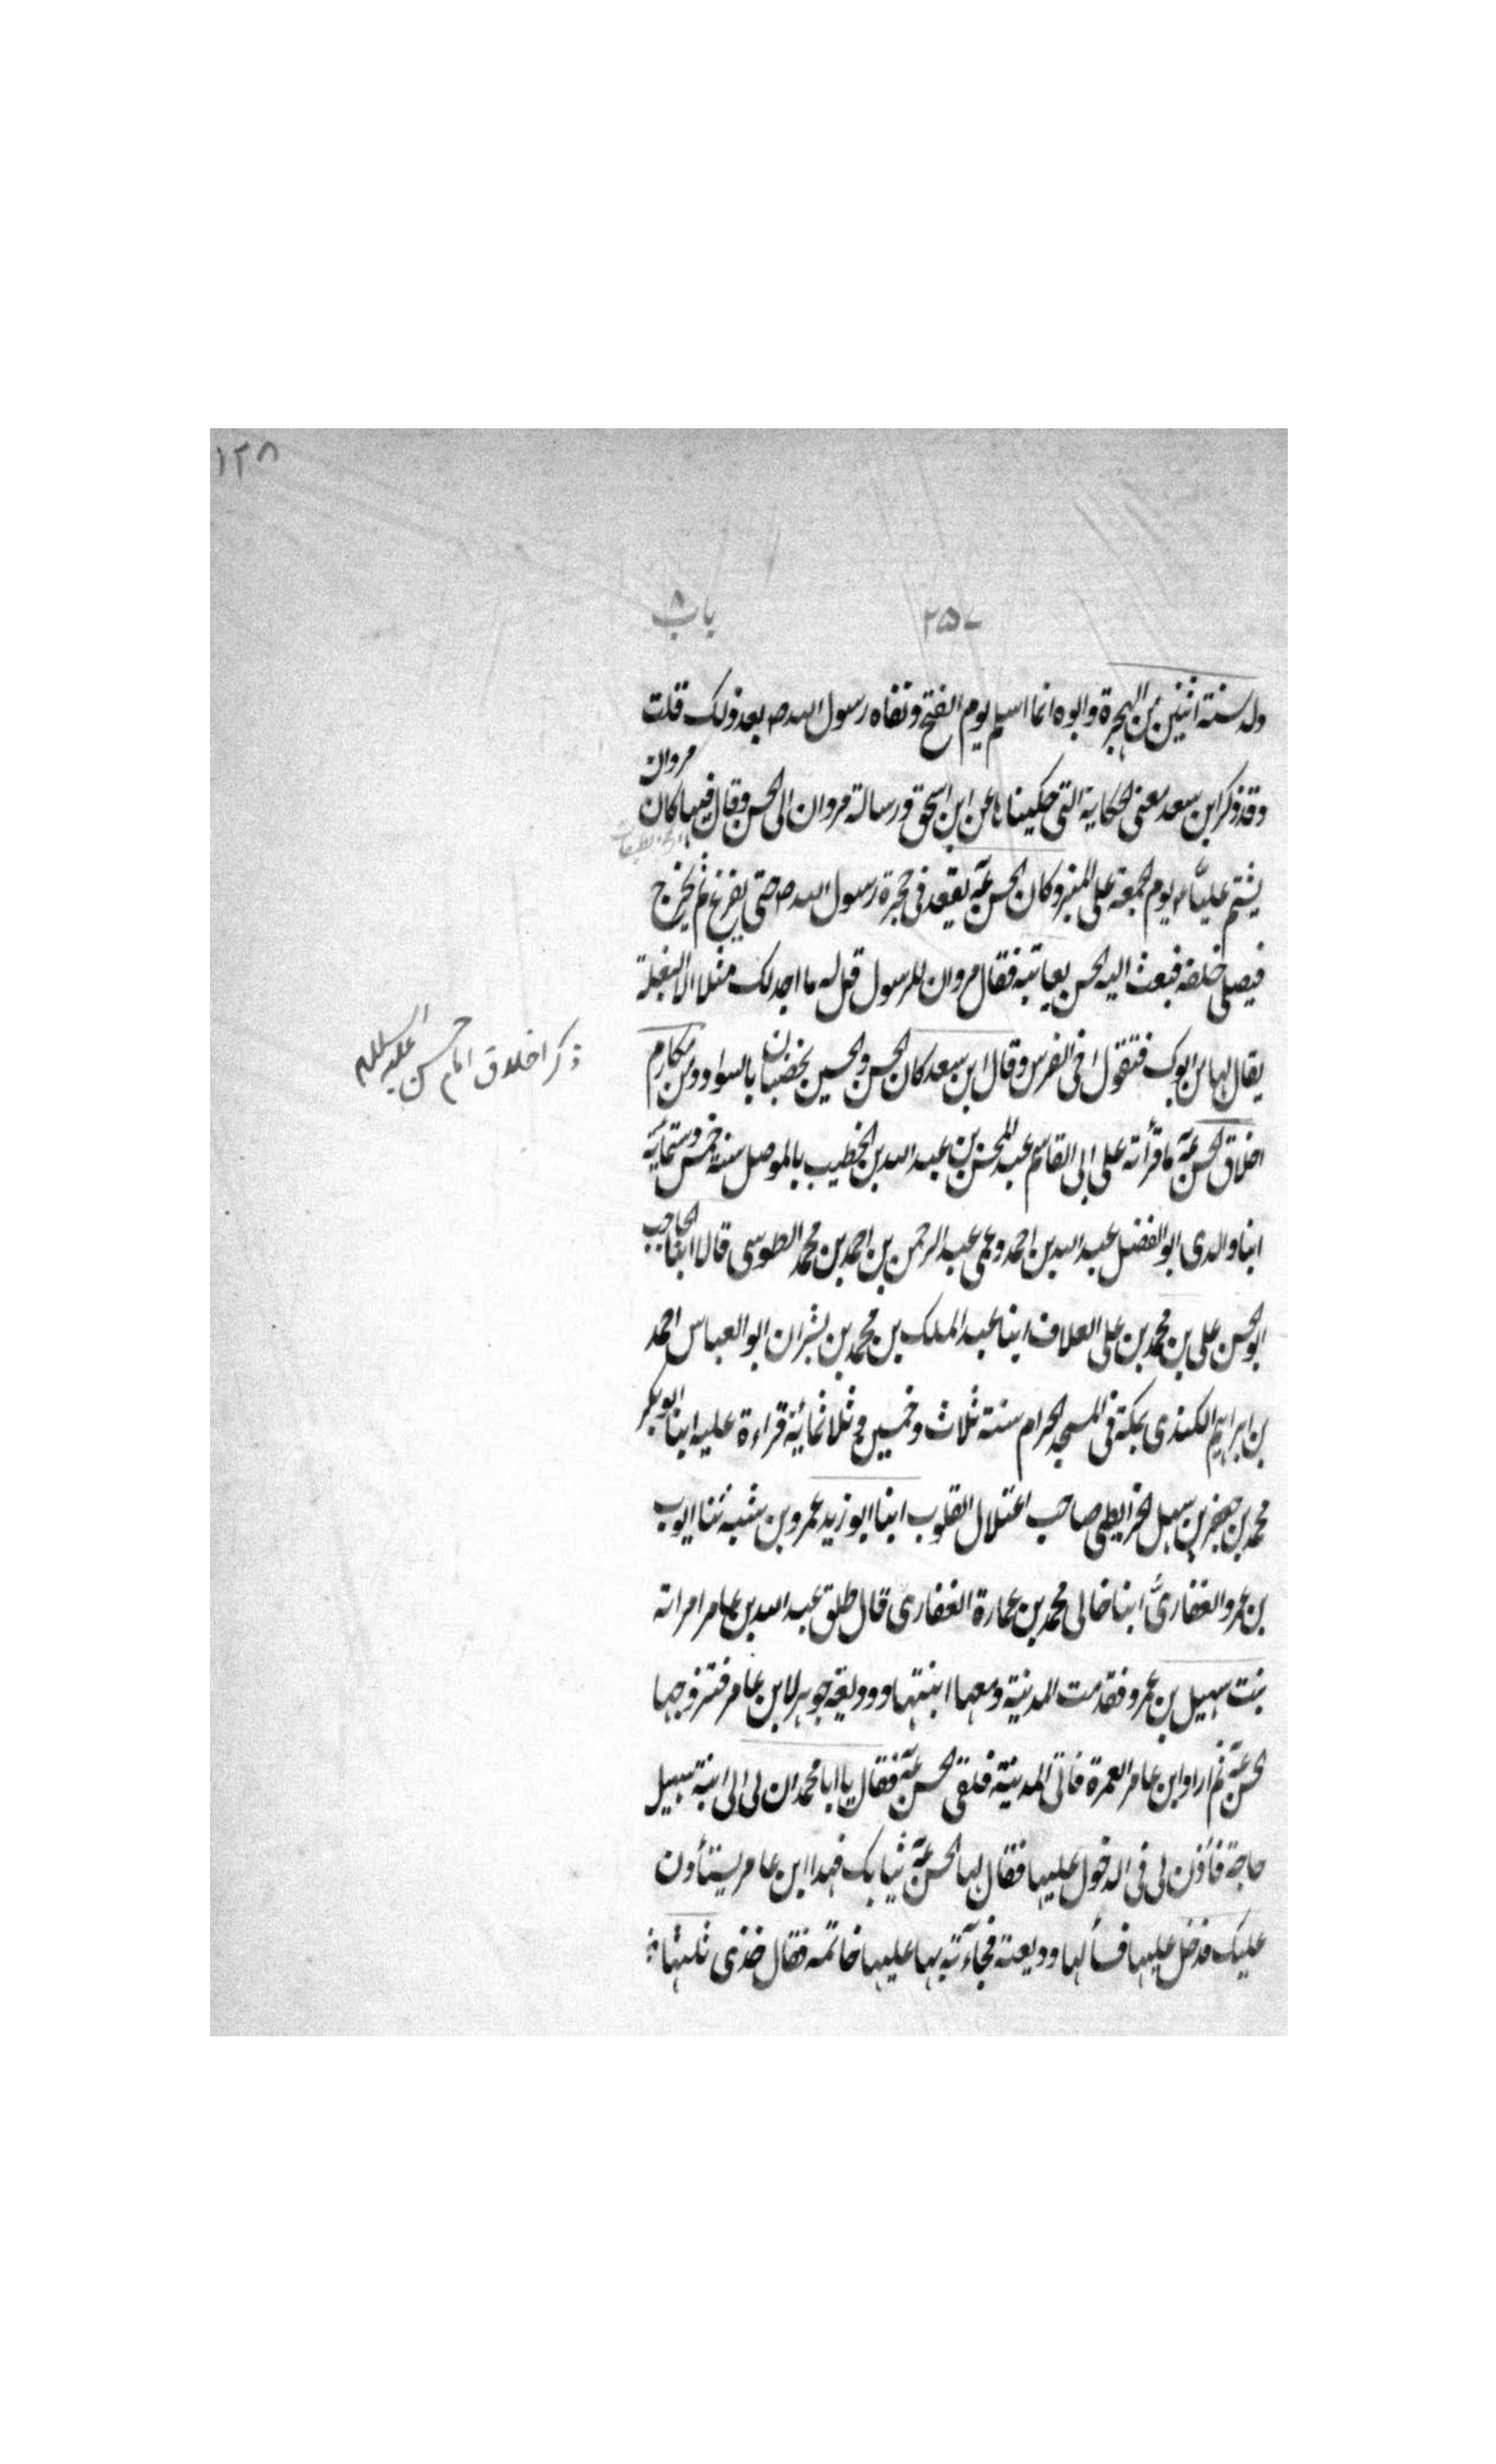 ١٢٨
٢٥٧ باب ٨
ولد سنة اثنين من الهجرة وابوه انما اسلم يوم الفتح ونفاه رسول الله ص بعد ذلك قلت
وقد ذكر ابن سعد معنى الحكاية التى حكيناها عن ابن اسحق ورسالة مروان الى الحسن وقال فيها كان مروان
يشتم عليّاً ع يوم الجمعة على المنبر وكان الحسن عه يقعد فى حجرة رسول الله ص حتى يفرغ ثم يخرج
فيصلى خلفه فبعث اليه الحسن يعاتبه فقال مروان للرسول قل له ما اجد لك مثلا الا البغلة
يقال لها من ابوك فتقول اخى الفرس وقال ابن سعد كان الحسن والحسين يخضبان بالسواد ومن مكارم
ذكر اخلاق امام حسن عليه السلام
اخلاق الحسن عه ما قرأته على ابى القاسم عبد المحسن بن عبد الله بن الخطيب بالموصل سنة خمس وستمائة
ابنا والدى ابو الفضل عبد الله بن احمد وعمى عبد الرحمن بن احمد بن محمد الطوسى قالا ابنا الحاجب
ابو الحسن على بن محمد بن على العلاف ابنا عبد الملك بن محمد بن بشران ابو العباس احمد
بن ابراهيم الكندى بمكة فى المسجد الحرام سنة ثلاث وخمسين وثلاثمائة قراءة عليه ابنا ابو بكر
محمد بن جعفر بن سهل الخرايطى صاحب اعتلال القلوب ابنا ابو زيد عمرو بن شبه ثنا ايوب
بن عمرو الغفارىّ ابنا خالى محمد بن عمارة الغفارى قال طلق عبد الله بن عامر امراته
بنت سهيل بن عمرو فقدمت المدينة ومعها ابنتها ووديعة جوهر لابن عامر فتزوجها
الحسن عه ثم اراد ابن عامر العمرة فاتى المدينة فلقى الحسن عه فقال يا ابا محمد ان لى الى ابنة سهيل
حاجة فأذن لى فى الدخول عليها فقال لها الحسن عه ثيابك فهذا ابن عامر يستأذن
عليك فدخل عليها فسألها وديعته فجآءته بها عليها خاتمه فقال خذى ثلثها